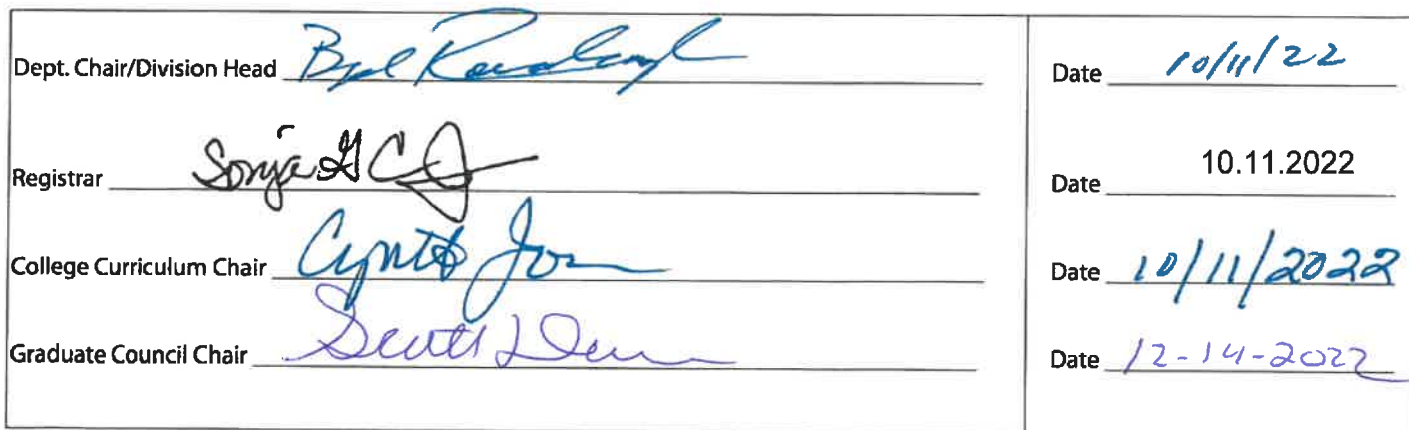 Dept. Chair/Division Head Date 10/11/22
Registrar Sonja G C Date 10.11.2022
College Curriculum Chair Date 10/11/2022
Graduate Council Chair Scott Date 12-14-2022